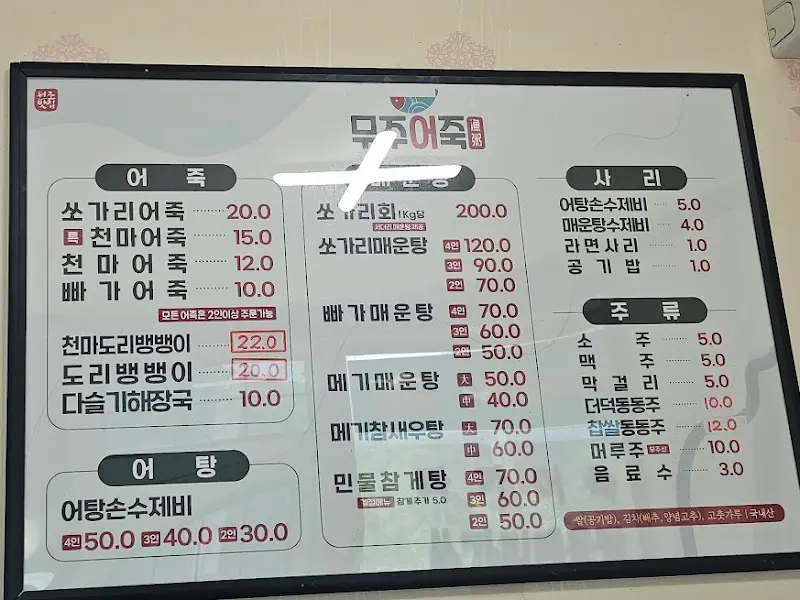 무주
맛집
무주어죽 漁粥
어죽
쏘가리어죽 20.0
특 천마어죽 15.0
천마어죽 12.0
빠가어죽 10.0
모든 어죽은 2인이상 주문가능
천마도리뱅뱅이 22.0
도리뱅뱅이 20.0
다슬기해장국 10.0
어탕
어탕손수제비
4인 50.0 3인 40.0 2인 30.0
매운탕
쏘가리회 1Kg당 200.0
서더리 매운탕 제공
쏘가리매운탕 4인 120.0
3인 90.0
2인 70.0
빠가매운탕 4인 70.0
3인 60.0
2인 50.0
메기매운탕 大 50.0
中 40.0
메기참새우탕 大 70.0
中 60.0
민물참게탕 4인 70.0
계절메뉴 참게 추가 5.0 3인 60.0
2인 50.0
사리
어탕손수제비 5.0
매운탕수제비 4.0
라면사리 1.0
공기밥 1.0
주류
소주 5.0
맥주 5.0
막걸리 5.0
더덕동동주 10.0
찹쌀동동주 12.0
머루주 무주산 10.0
음료수 3.0
쌀(공기밥), 김치(배추,양념고추), 고춧가루 | 국내산